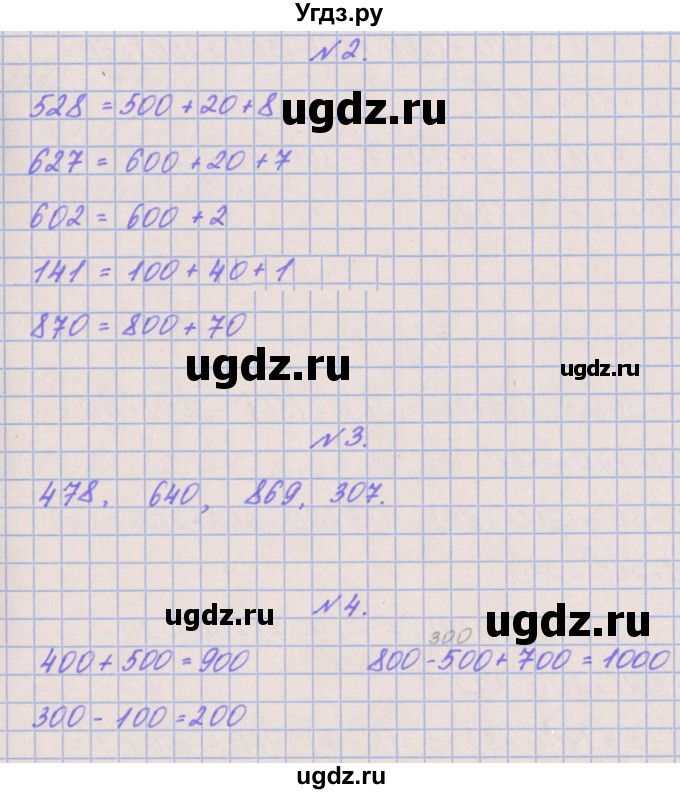 Угдз.ру
№2.
528 = 500 + 20 + 8
ugdz.ru
627 = 600 + 20 + 7
602 = 600 + 2
141 = 100 + 40 + 1
870 = 800 + 70
ugdz.ru
ugdz.ru
№3.
478, 640, 869, 307.
ugdz.ru
№4.
ugdz.ru
300
400 + 500 = 900 800 - 500 + 700 = 1000
300 - 100 = 200
ugdz.ru
ugdz.ru